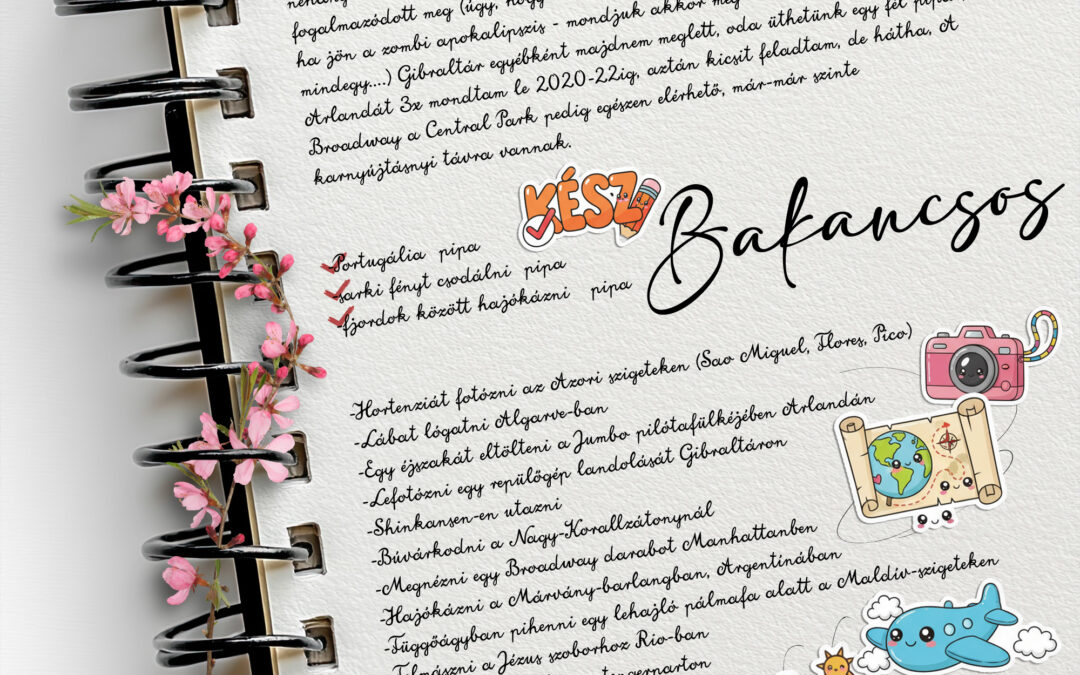 fogalmazódott meg (úgy, hogy
ha jön a zombi apokalipszis - mondjuk akkor meg
mindegy....) Gibraltár egyébként majdnem meglett, oda üthetünk egy fél pipát,
Arlandát 3x mondtam le 2020-22ig, aztán kicsit feladtam, de hátha, A
Broadway a Central Park pedig egészen elérhető, már-már szinte
karnyújtásnyi távra vannak.
KÉSZ
Bakancsos
Portugália pipa
-sarki fényt csodálni pipa
-fjordok között hajókázni pipa
-Hortenziát fotózni az Azori szigeteken (Sao Miguel, Flores, Pico)
-Lábat lógatni Algarve-ban
-Egy éjszakát eltölteni a Jumbo pilótafülkéjében Arlandán
-Lefotózni egy repülőgép landolását Gibraltáron
-Shinkansen-en utazni
-Búvárkodni a Nagy-Korallzátonynál
-Megnézni egy Broadway darabot Manhattanben
-Hajókázni a Márvány-barlangban, Argentínában
-Függőágyban pihenni egy lehajló pálmafa alatt a Maldív-szigeteken
-Felmászni a Jézus szoborhoz Rio-ban
tengerparton